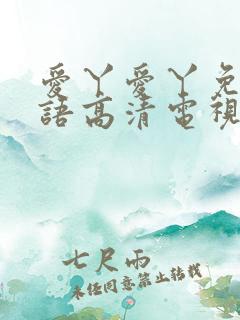 愛丫愛丫免
語高清電視
七尺雨
未經同意禁止轉載